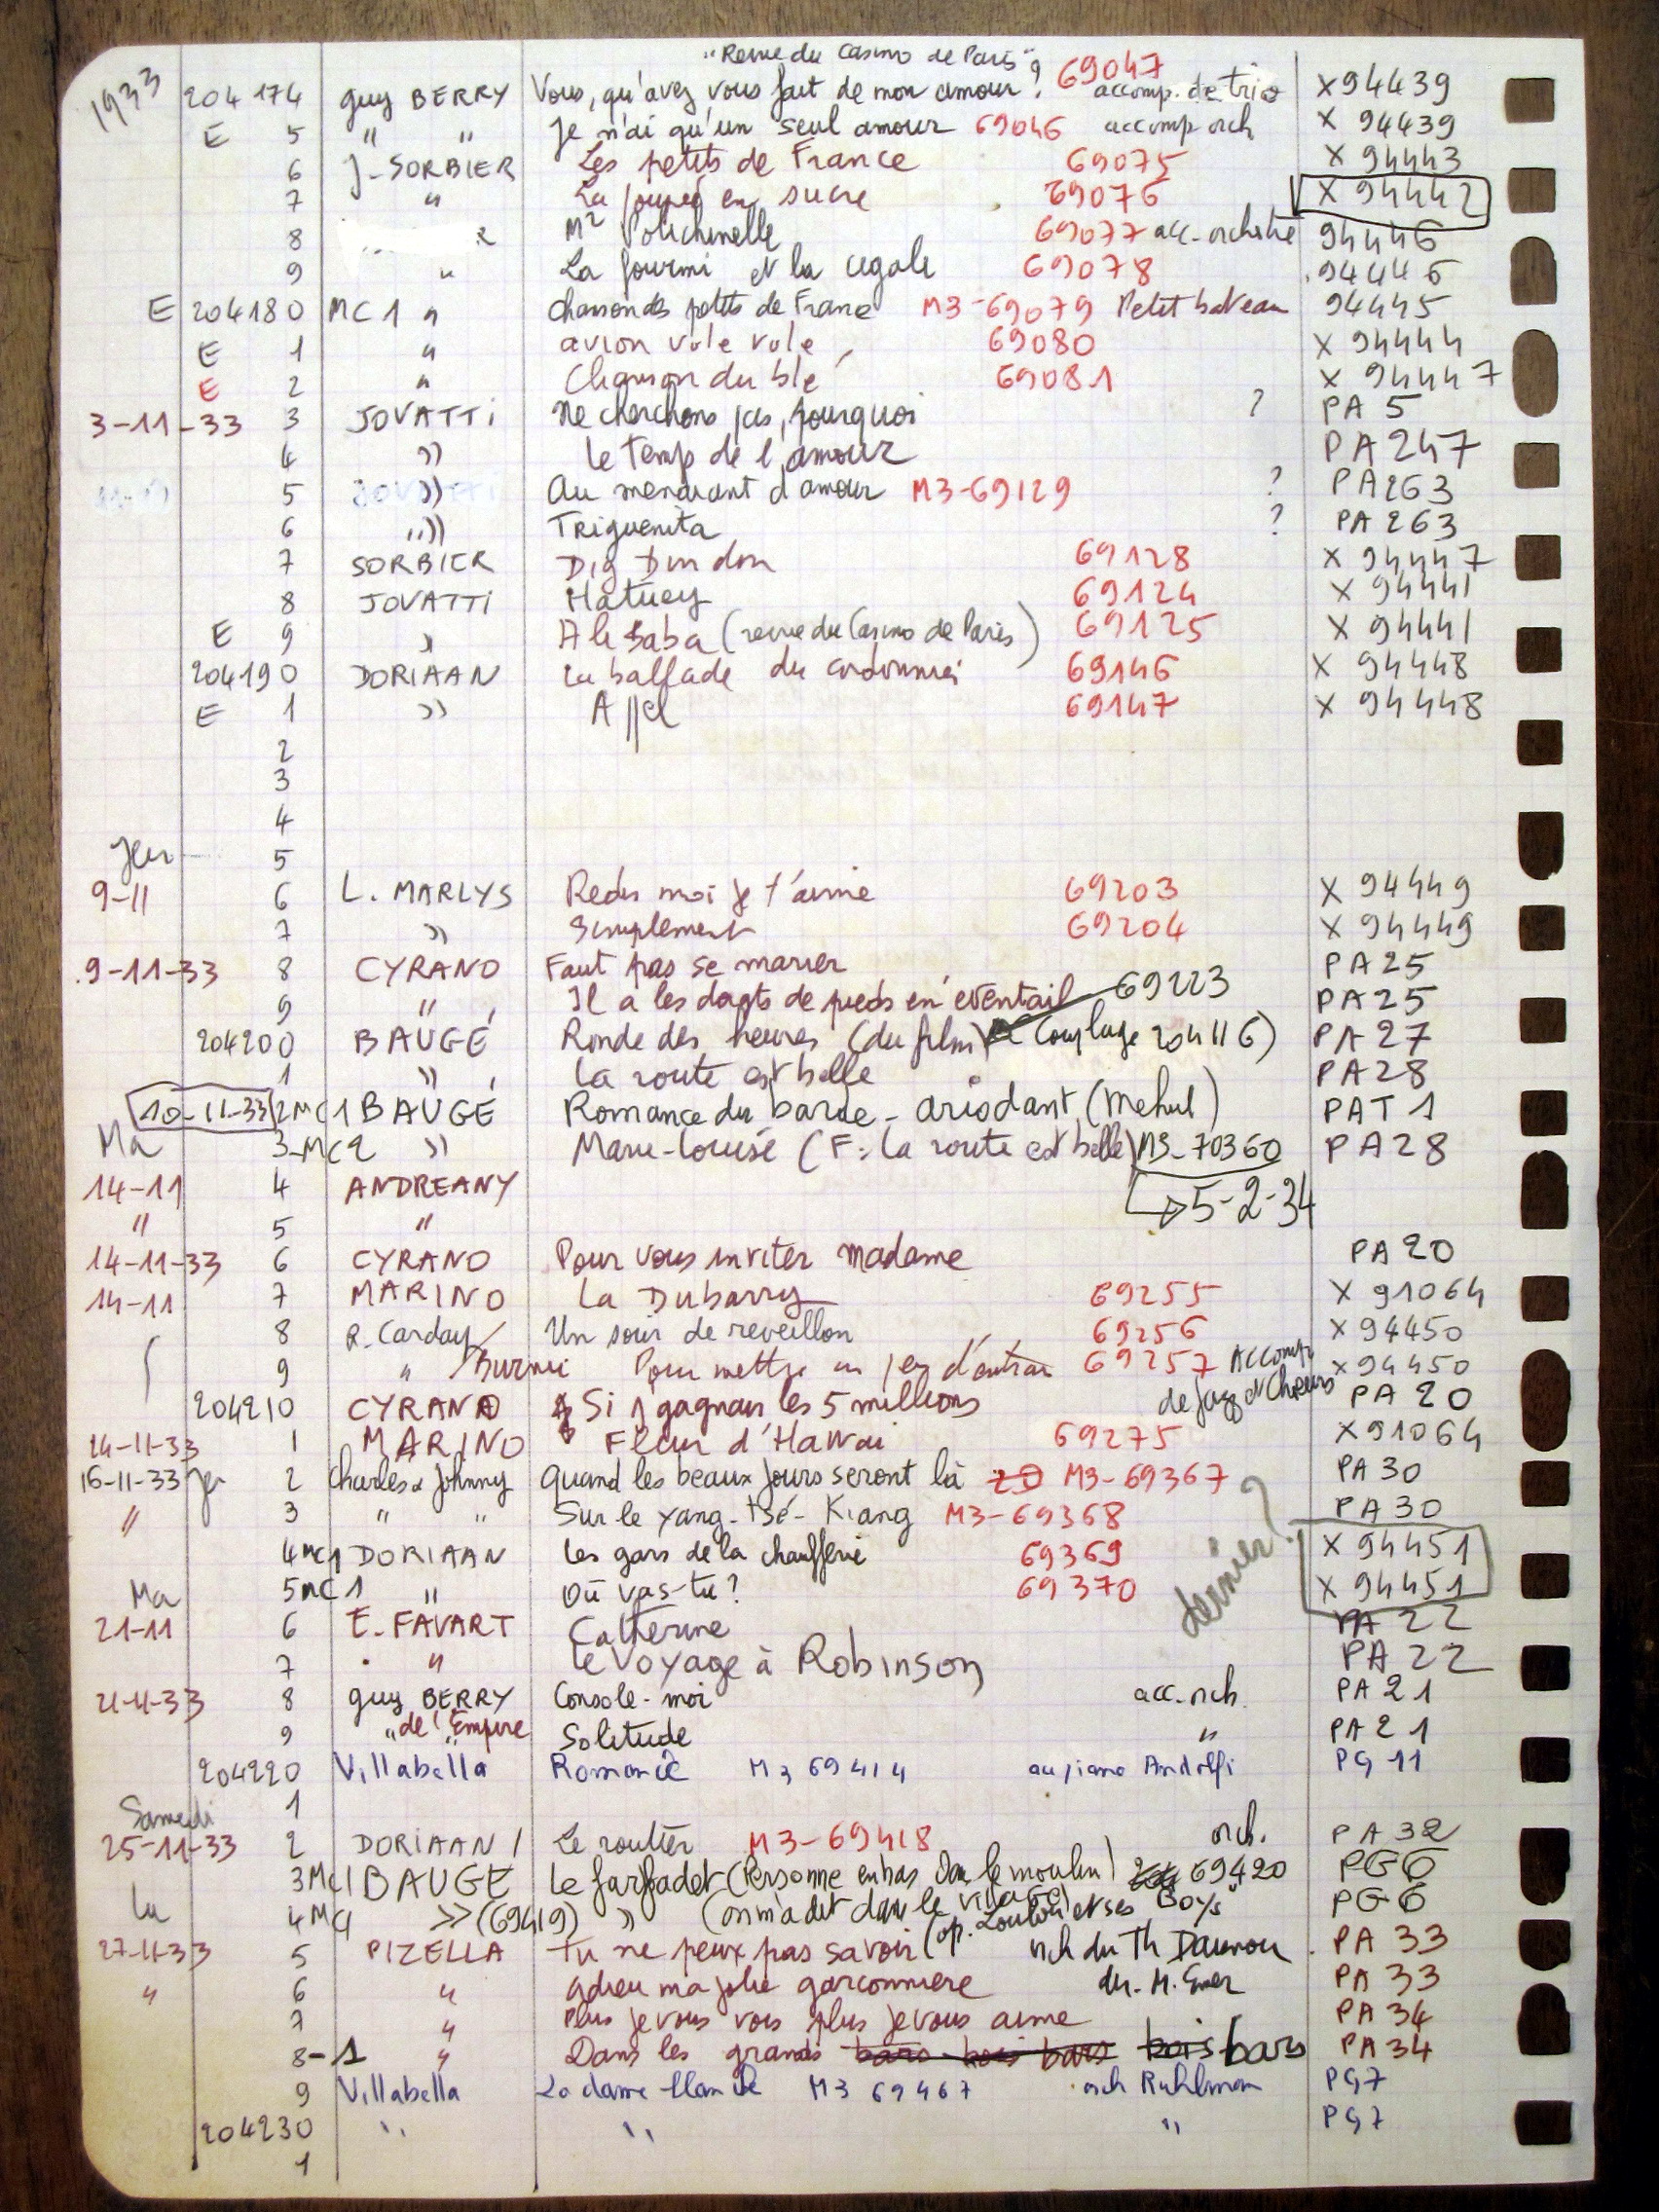 "Revue du Casino de Paris"
1933 204174 Guy BERRY Vous, qu'avez vous fait de mon amour? 69047 accomp. de trio X94439
E 5 " " Je n'ai qu'un seul amour 69046 accomp orch X 94439
6 J-SORBIER Les petits de France 69075 X 94443
7 " La poupée en sucre 69076 X 94442
8 Polichinelle 69077 acc-orchestre 94446
9 " La fourmi et la cigale 69078 94446
E 204180 MC1 " Chanson des petits de France M3-69079 Petit bateau 94445
E 1 " avion vole vole 69080 X 94444
E 2 " Chanson du blé 69081 X 94447
3-11-33 3 JOVATTI Ne cherchons pas, pourquoi ? PA 5
4 » Le temps de l'amour PA 247
5 » Au mendiant d'amour M3-69129 ? PA263
6 » Triguenita ? PA 263
7 SORBIER Dig Din don 69128 X 94447
8 JOVATTI Hatuey 69124 X 94441
E 9 » Ali Baba (revue du Casino de Paris) 69125 X 94441
204190 DORIAAN La ballade du cordonnier 69146 X 94448
E 1 » Appel 69147 X 94448
2
3
4
Jeu 5
9-11 6 L. MARLYS Redis moi je t'aime 69203 X 94449
7 » Simplement 69204 X 94449
9-11-33 8 CYRANO Faut pas se marier PA25
9 " Il a les doigts de pieds en éventail 69223 PA25
204200 BAUGÉ Ronde des heures (du film) (Couplage 204116) PA 27
1 » La route est belle PA28
10-11-33 2MC1 BAUGÉ Romance du barde - ariodant (Mehul) PAT 1
Ma 3-MC2 » Marie-Louise (F: La route est belle) M3-70360 PA28
14-11 4 ANDREANY → 5-2-34
" 5 "
14-11-33 6 CYRANO Pour vous inviter Madame PA 20
14-11 7 MARINO La Dubarry 69255 X 91064
8 R. Carday/ Un soir de reveillon 69256 X 94450
9 " /Burnier Pour mettre un peu d'entrain 69257 Accomp de jazz et Choeurs X 94450
204210 CYRANO Si j gagnais les 5 millions PA 20
14-11-33 1 MARINO Fleur d'Hawai 69275 X91064
16-11-33 Jeu 2 Charles & Johnny Quand les beaux jours seront là M3-69367 PA 30
" 3 " " Sur le Yang-tsé-Kiang M3-69368 PA 30
dernier?
4MC1 DORIAAN Les gars de la chaufferie 69369 X 94451
Ma 5MC1 " Où vas-tu? 69370 X 94451
21-11 6 E. FAVART Catherine PA 22
7 " Le voyage à Robinson PA 22
21-11-33 8 Guy BERRY Console-moi acc. orch. PA 21
9 " de l'Empire Solitude " PA 21
204220 Villabella Romance M3 69414 au piano Andolfi PG 11
Samedi 1
25-11-33 2 DORIAAN 1 Le routier M3-69418 orch. PA 32
3MC1 BAUGÉ Le farfadet (Personne en bas dans le moulin) 69420 PG6
Lu 4MC1 » (69419) » (on m'a dit dans le village) PG6
27-11-33 5 PIZELLA Tu ne peux pas savoir (op. Loulou et ses Boys" orch du Th Daunou PA 33
" 6 " Adieu ma jolie garconniere dir. M. Emer PA 33
7 " Plus je vous vois plus je vous aime PA 34
8-1 " Dans les grands bars bois bars bois bars PA 34
9 Villabella La dame blanche M3 69467 orch Ruhlmann PG7
204230 " " " PG7
1